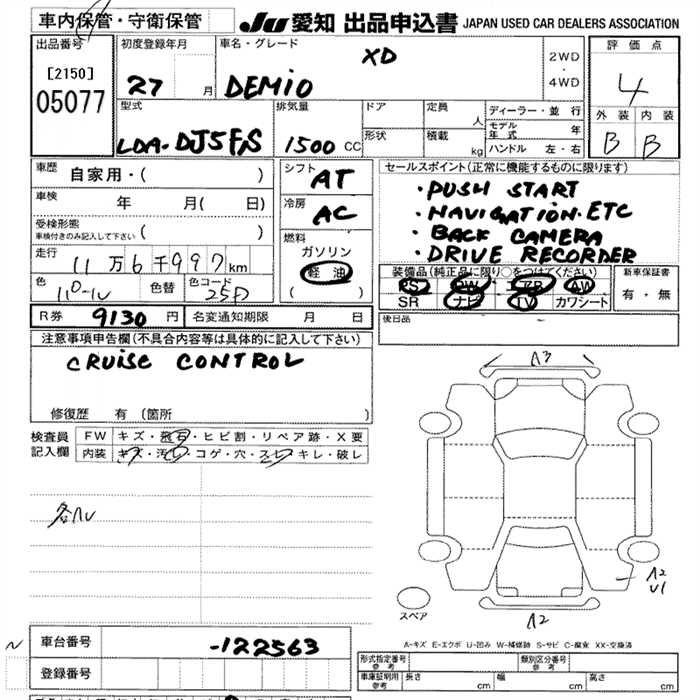 車内保管・守衛保管
JU 愛知 出品申込書 JAPAN USED CAR DEALERS ASSOCIATION
出品番号
[2150]
05077
初度登録年月
27 月
車名・グレード
XD
DEMIO
2WD
・
4WD
評価点
4
外装 内装
B B
型式
LDA-DJ5FS
排気量
1500 CC
ドア
定員
人
形状
積載
kg
ディーラー・並行
モデル年式 年
ハンドル 左・右
車歴
自家用・( )
車検
年 月( 日)
受検形態
車検付きのみ記入して下さい ( )
走行
11万6千997km
色
パール
色替
色コード
25D
シフト
AT
冷房
AC
燃料
ガソリン
軽油
( )
セールスポイント(正常に機能するものに限ります)
・PUSH START
・NAVIGATION・ETC
・BACK CAMERA
・DRIVE RECORDER
装備品(純正品に限り○をつけてください)
PS PW エアB AW
SR ナビ TV カワシート
新車保証書
有・無
R券 9130 円
名変通知期限 月 日
後日品
注意事項申告欄(不具合内容等は具体的に記入して下さい)
CRUISE CONTROL
修復歴 有 (箇所 )
検査員
記入欄
FW キズ・飛石・ヒビ割・リペア跡・X要
内装 キズ・汚レ・コゲ・穴・スレ・キレ・破レ
A3
A2
U1
A2
スペア
A-キズ E-エクボ U-凹み W-補修跡 S-サビ C-腐食 XX-交換済
車台番号
-122563
登録番号
形式指定番号
参考
類別区分番号
参考
車庫証明用
参考
長さ cm
幅 cm
高さ cm